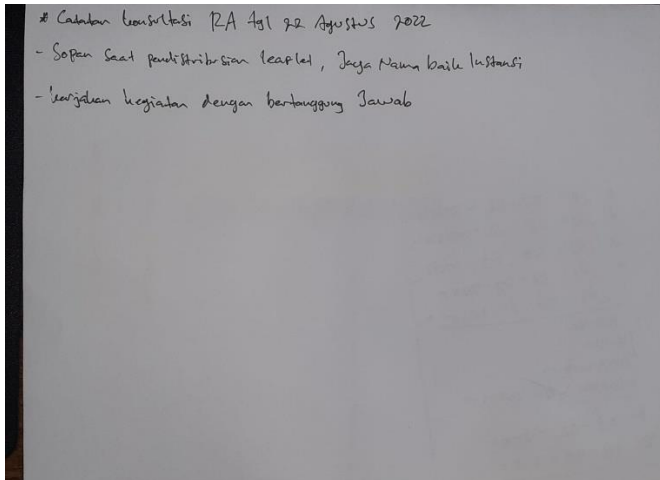 * Catatan konsultasi RA tgl 22 Agustus 2022
- Sopan saat pendistribusian leaflet, Jaga Nama baik Instansi
- kerjakan kegiatan dengan bertanggung Jawab